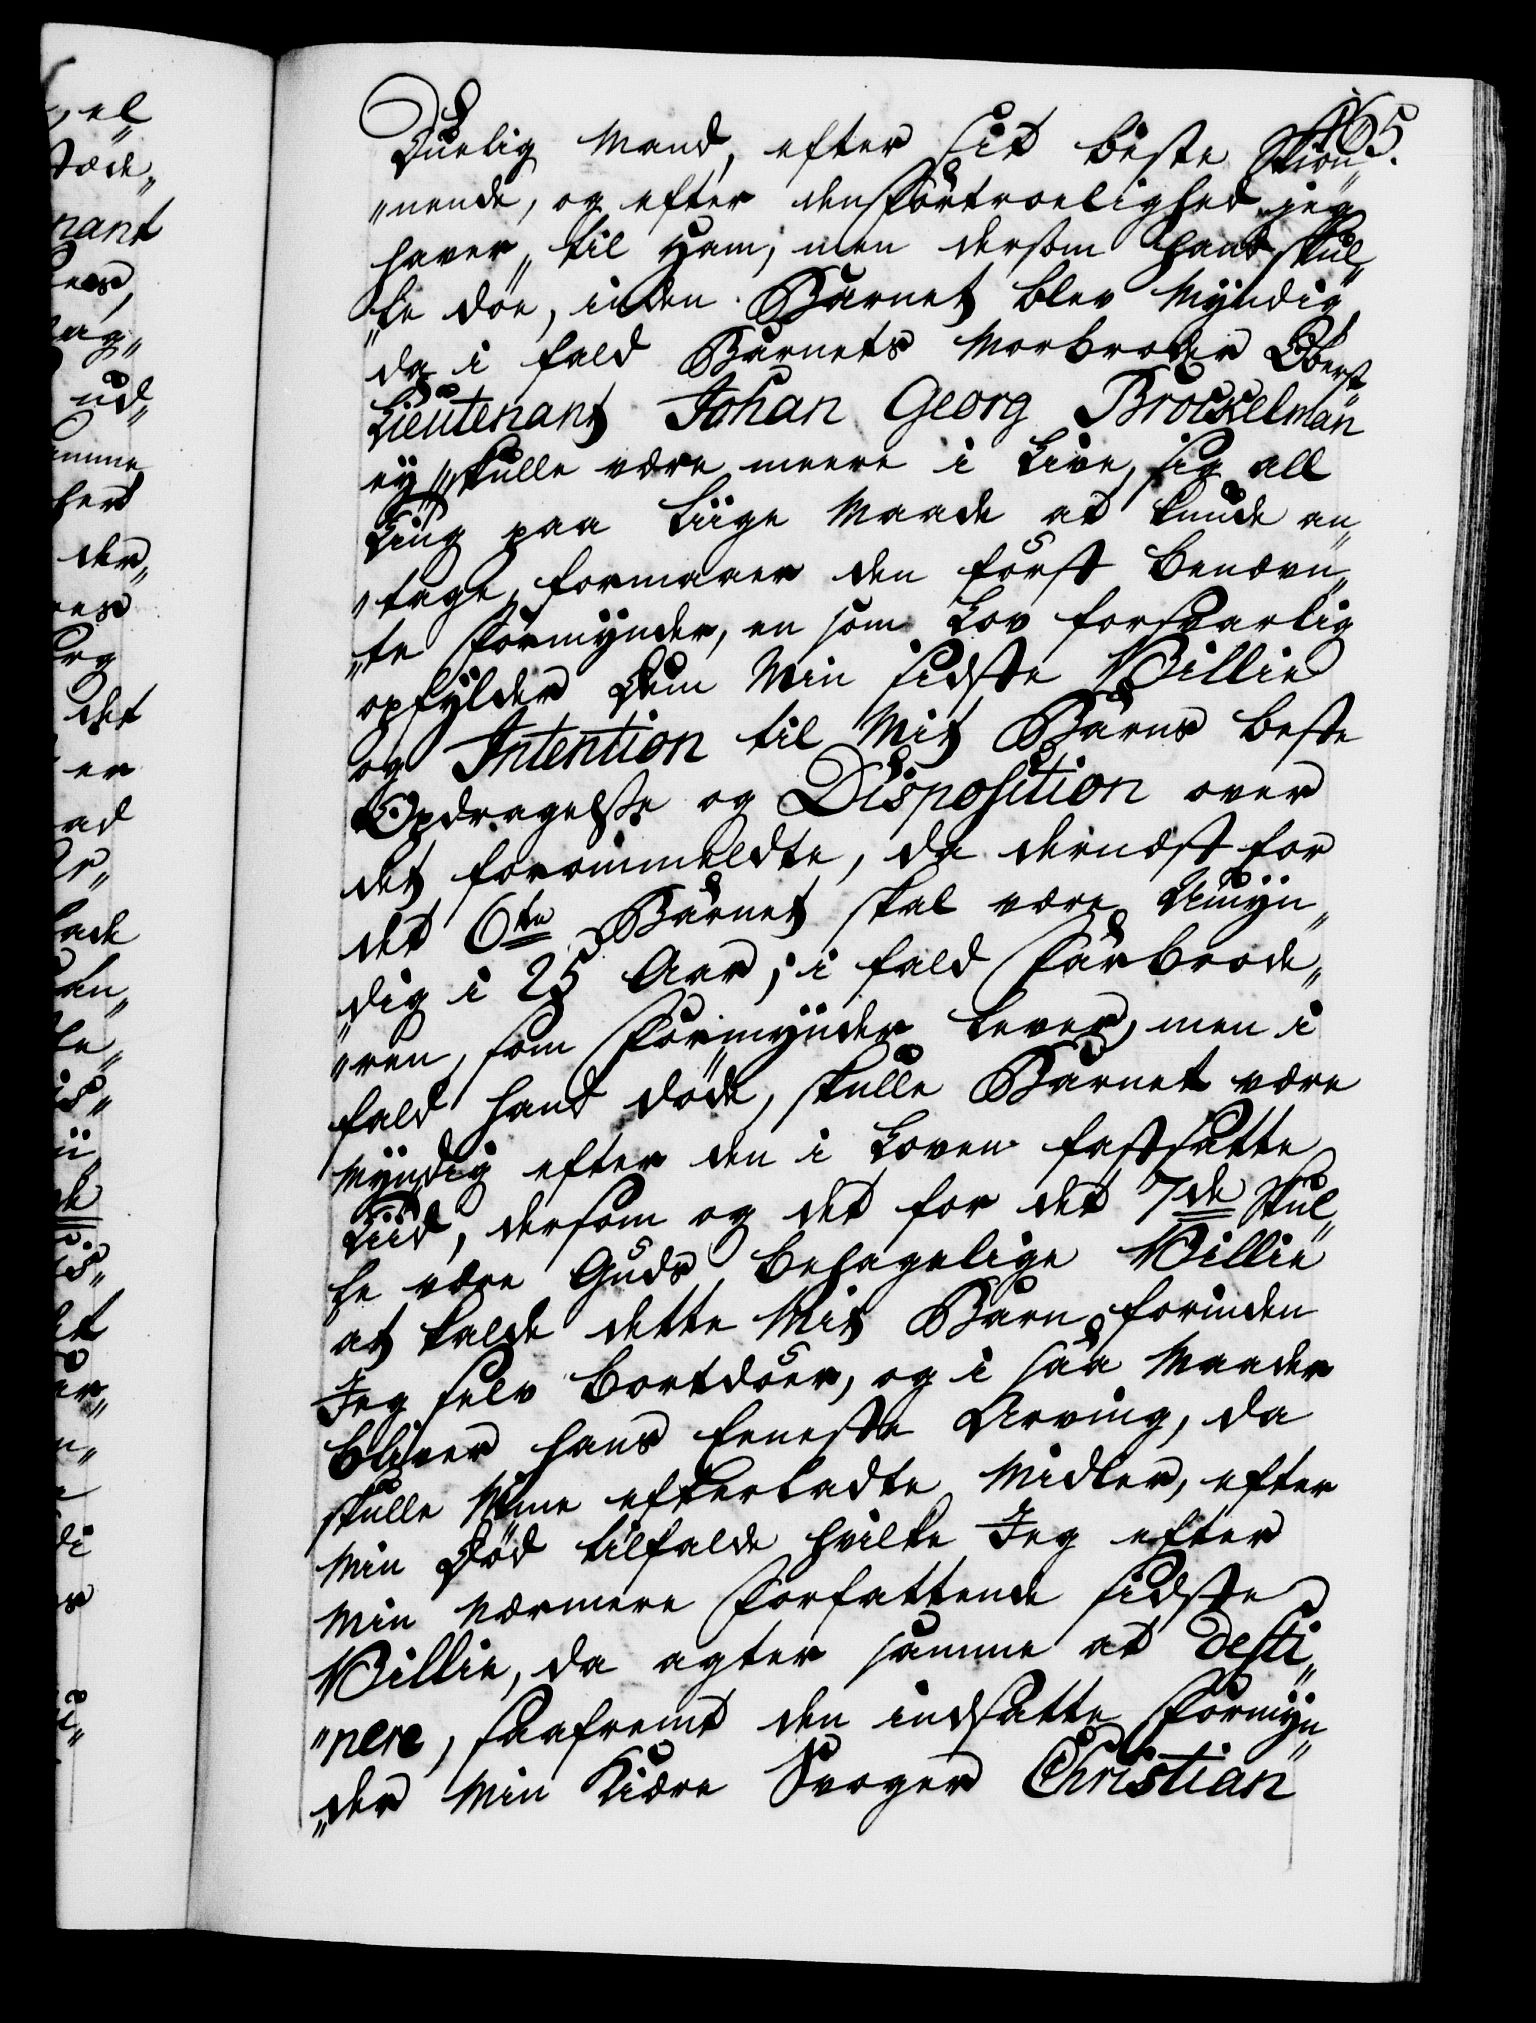 465.
Duelig Mand, efter sit beste Skiøn„
„nende, og efter den Fortroelighed jeg
haver til Ham; men dersom Hand skul„
„le døe, inden Barnet blev Myndig,
da i fald Barnets Morbroder Oberst
Lieutenant Johan Georg Brockelman
ey skulle være meere i Live, sig all
Ting paa Liige Maade at kunde an„
„tage, formaaer den først benævn„
„te Formynder, en som Lov forsvarlig
opfylder Min sidste Villie
og Intention til Mit Barns beste
Opdragelse og Disposition over
det forommeldte, da dernæst for
det 6te Barnet skal være Umyn„
dig i 25 Aar; i fald Farbrode„
„ren, som Formynder Lever, men i
fald Hand døde, skulle Barnet være
Myndig efter den i Loven fastsatte
Tiid, dersom og det for det 7de skul„
le være Guds behagelige Villie
at kalde dette Mit Barn, forinden
Jeg selv bortdøer, og i saa Maader
bliver hans Eeneste Arving, da
skulle Mine efterladte Midler, efter
Min Død tilfalde hvilke Jeg efter
Min nærmere Forfattende sidste
Villie, da agter samme at desti„
„nere, saafremt den indsatte Formyn„
„der Min Kiære Svoger Christian